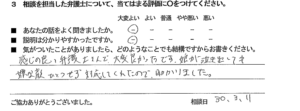 3 相談を担当した弁護士について、当てはまる評価に○をつけてください。
大変よい よい 普通 やや悪い 悪い
■ あなたの話をよく聞きましたか。
■ 説明は分かりやすかったですか。
■ 気がついたことがありましたら、どのようなことでも結構ですからお書きください。
感じの良い弁護士さんで大変良かったです。
対応してくれたので、助かりました。
ご協力ありがとうございました。 相談日 30.3.11